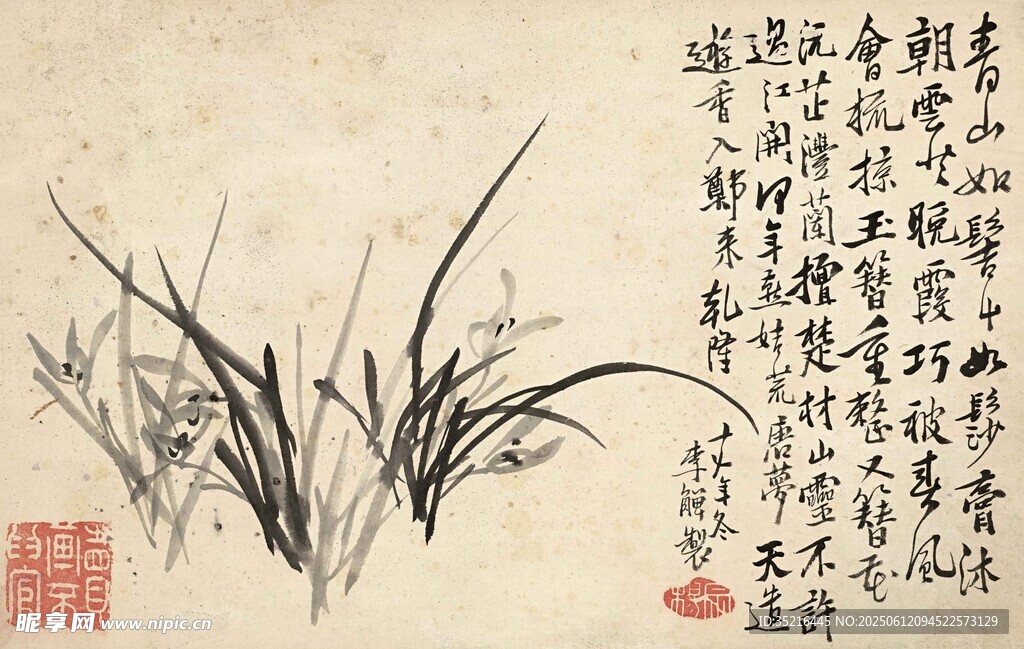 青山如髻斗如髟沙膏沐
朝雲共晚霞巧被春風
會梳掠玉簪重整又簪花
沅芷灃蘭擅楚材山靈不許
過江開何年燕姞荒唐夢天造
遊香入鄭來乾隆
十八年冬
李觶製
昵享网 www.nipic.cn
ID:35216445 NO:20250612094522573129